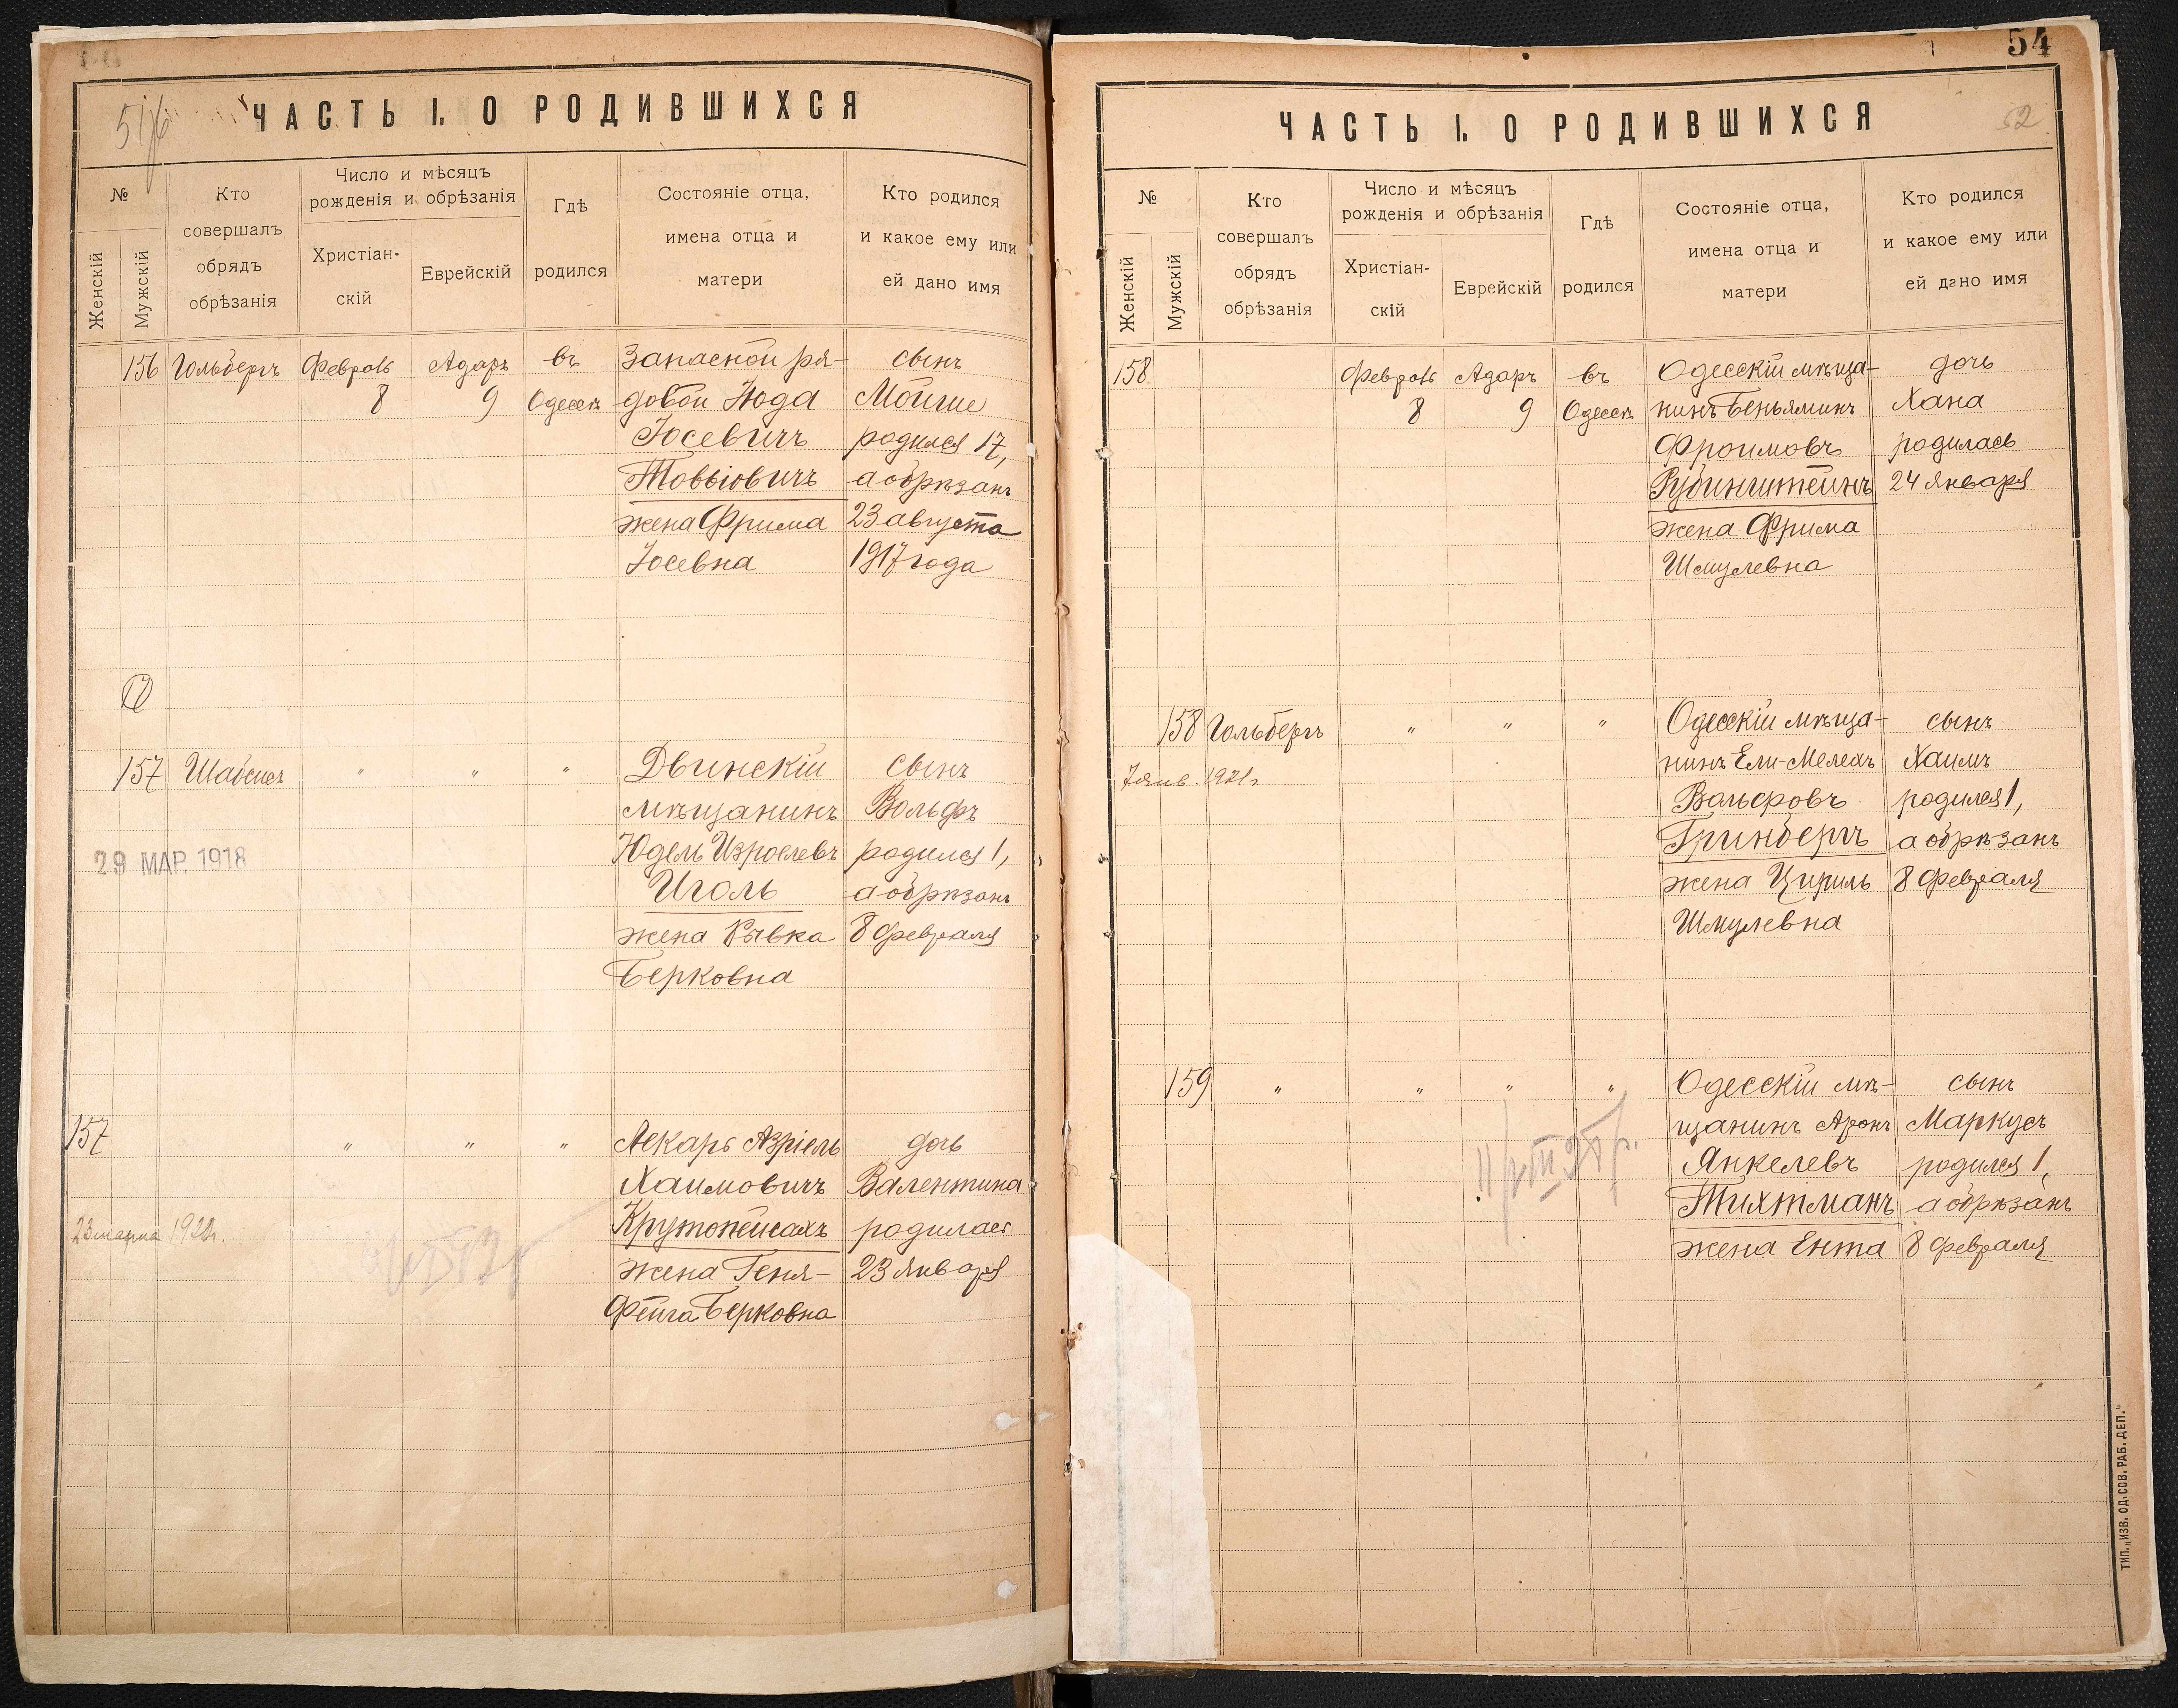 ЧАСТЬ I. О РОДИВШИХСЯ
№
Женскій
Мужскій
Кто
совершалъ
обрядъ
обрѣзанія
Число и мѣсяцъ
рожденія и обрѣзанія
Христіан-
скій
Еврейскій
Гдѣ
родился
Состояніе отца,
имена отца и
матери
Кто родился
и какое ему или
ей дано имя
156 Гольбергъ Февраль Адаръ въ Запасной ря- сынъ
8 9 Одессѣ довой Июда Мойше
Іосевичъ родился 17,
Товьіовичъ а обрѣзанъ
жена Фрима 23 августа
Іосевна 1917 года
157 Шабсис " " " Двинскій сынъ
мѣщанинъ Вольфъ
29 МАР. 1918 Юдель Изроелевъ родился 1,
Иголь а обрѣзанъ
жена Рывка 8 февраля
Берковна
157 " " " Лекарь Азріель дочь
Хаимовичъ Валентина
23 марта Крутопейсахъ родилась
жена Геня- 23 января
Фейга Берковна
54
ЧАСТЬ I. О РОДИВШИХСЯ
52
№
Женскій
Мужскій
Кто
совершалъ
обрядъ
обрѣзанія
Число и мѣсяцъ
рожденія и обрѣзанія
Христіан-
скій
Еврейскій
Гдѣ
родился
Состояніе отца,
имена отца и
матери
Кто родился
и какое ему или
ей дано имя
158 Февраль Адаръ въ Одесскій мѣща- дочь
8 9 Одессѣ нинъ Беньяминъ Хана
Фроимовъ родилась
Рубинштейнъ 24 января
жена Фрима
Шмулевна
158 Гольбергъ " " " Одесскій мѣща- сынъ
7 янв. 1921 г нинъ Ели-Мелехъ Хаимъ
Вольфовъ родился 1,
Гринбергъ а обрѣзанъ
жена Цириль 8 февраля
Шмулевна
159 " " " " Одесскій мѣ- сынъ
щанинъ Аронъ Маркусъ
Янкелевъ родился 1,
Тихтманъ а обрѣзанъ
жена Ента 8 февраля
ТИП. „ИЗВ. ОД. СОВ. РАБ. ДЕП."